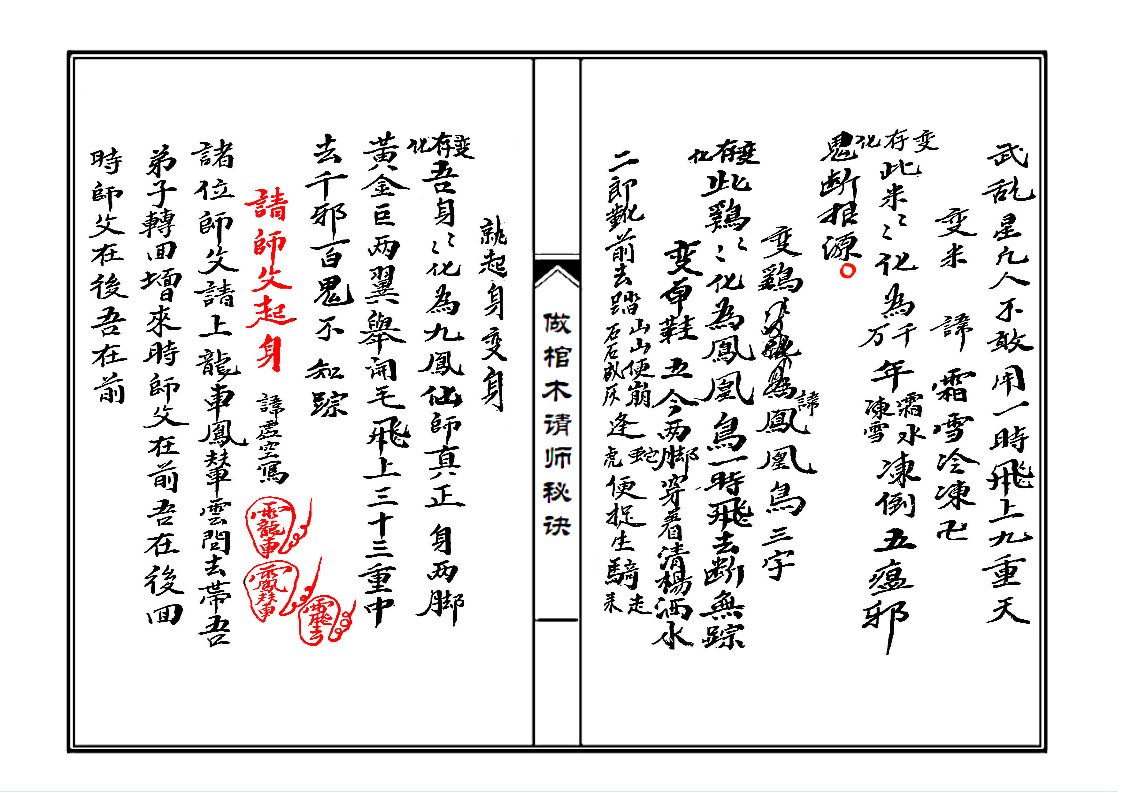 武乱星凢人不敢用一時飛上九重天
变米 諱 霜雪冷凍卍
变存化此米〻化為千万年霜氷凍雪凍倒五瘟邪
鬼断根源
变鷄 諱鳳凰鳥三字
变存化此鷄〻化為鳳凰鳥一時飛去断無踪
变草鞋 五今两脚穿着清楊洒水
二郎靴前去踏山山便崩石石成灰逢蛇虎便捉生騎走来
做棺木请师秘诀
就起身变身
变存化吾身〻化為九鳳仙師真正身两脚
黃金巨两翼舉開毛飛上三十三重中
去千邪百鬼不知踪
請師父起身 諱虚空寫
諸位師父請上龍車鳳輦雲問去帶吾
弟子轉回壇來時師父在前吾在後回
時師父在後吾在前